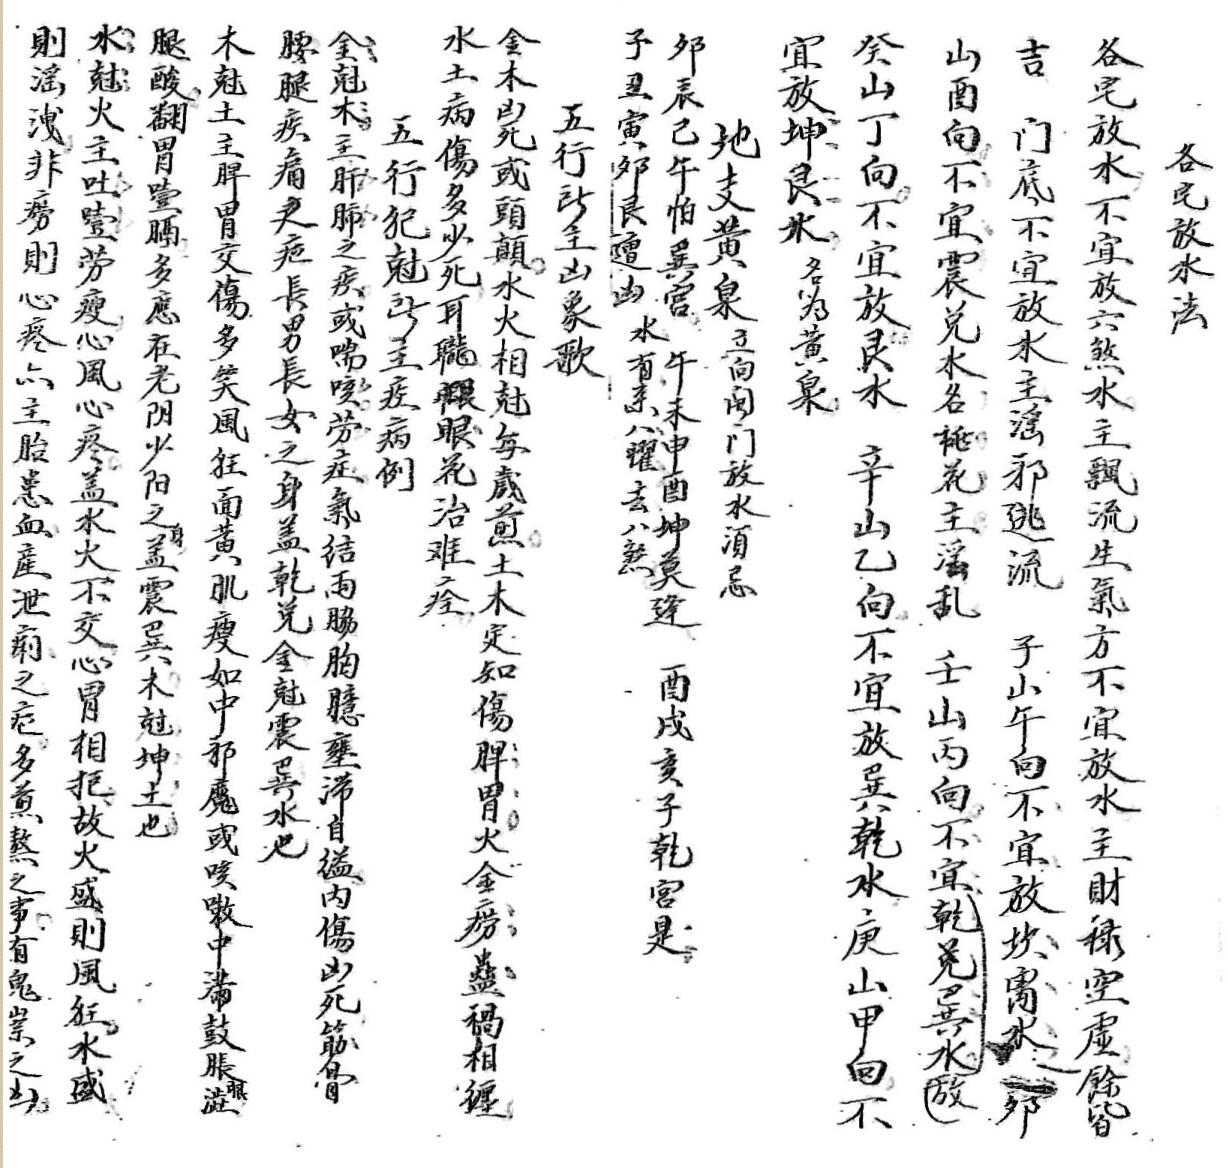 各宅放水法
各宅放水不宜放六煞水主飄流生氣方不宜放水主財祿空虛餘皆
吉　门底不宜放水主滛邪逃流　子山午向不宜放坎离水　卯
山酉向不宜震兑水名桃花主滛乱　壬山丙向不宜乾兑巽水放
癸山丁向不宜放艮水　辛山乙向不宜放巽乾水庚山甲向不
宜放坤艮水　名为黄泉
地支黄泉　立向開门放水須忌
卯辰巳午怕巽宫　午未申酉坤莫逢　酉戌亥子乾宫是
子丑寅卯艮遭凶　水有来八曜去八煞
五行所主凶象歌
金木凶死或頭顛水火相尅每歲煎土木定知傷脾胃火金癆蠱禍相纏
水土病傷多少死耳聾眼花治难痊
五行犯尅所主疾病例
金尅木主肝肺之疾或喘咳劳症氣結兩脇胸臆壅滞自縊内傷凶死筋骨
腰腿疾痛之疤長男長女之身盖乾兑金尅震巽水也
木尅土主脾胃交傷多笑風狂面黄肌瘦如中邪魔或咳嗽中滿鼓脹眼澁
腿酸翻胃噎膈多應在老阴少阳之身盖震巽木尅坤土也
水尅火主吐噎劳瘦心風心疼盖水火不交心胃相拒故火盛則風狂水盛
則滛洩非癆則心疼亦主胎患血産泄痢之症多煎熬之事有鬼祟之凶